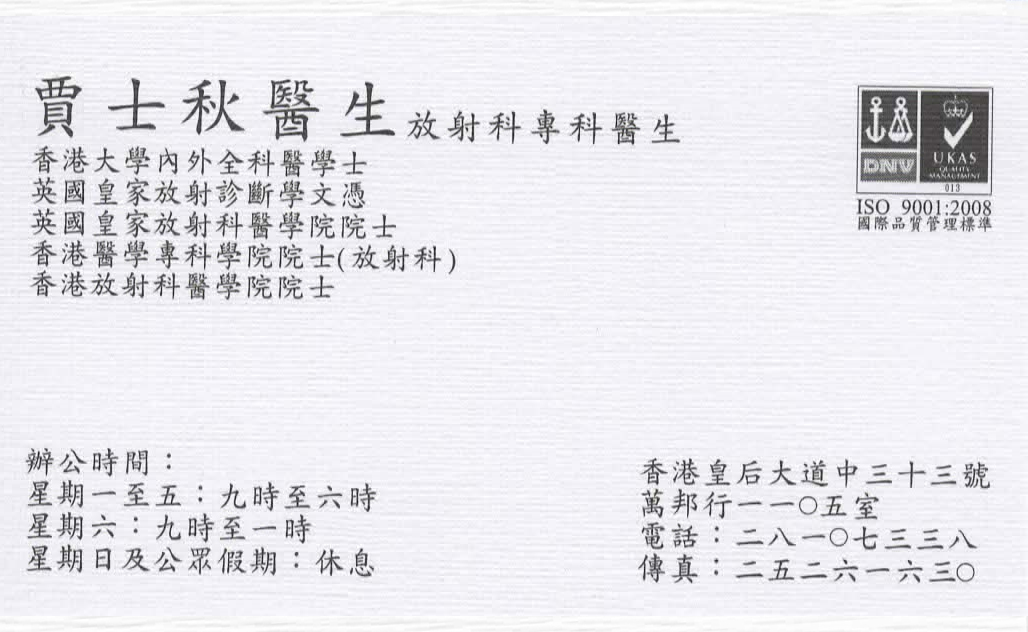 賈士秋醫生 放射科專科醫生
香港大學內外全科醫學士
英國皇家放射診斷學文憑
英國皇家放射科醫學院院士
香港醫學專科學院院士(放射科)
香港放射科醫學院院士
DNV
UKAS
QUALITY
MANAGEMENT
013
ISO 9001:2008
國際品質管理標準
辦公時間：
星期一至五：九時至六時
星期六：九時至一時
星期日及公眾假期：休息
香港皇后大道中三十三號
萬邦行一一○五室
電話：二八一○七三三八
傳真：二五二六一六三○